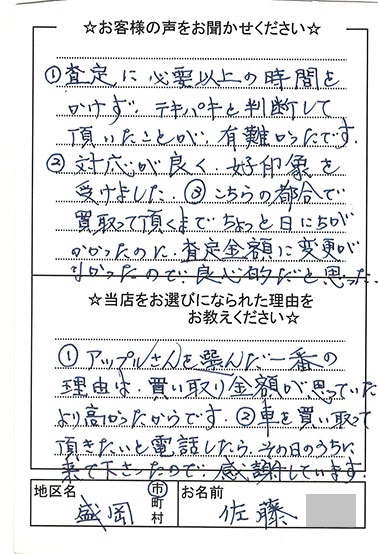 ☆お客様の声をお聞かせください☆
①査定に必要以上の時間を
かけず、テキパキと判断して
頂いたことが、有難かったです。
②対応が良く、好印象を
受けました。③こちらの都合で
買取って頂くまでちょっと日にちが
かかったのに、査定金額に変更が
なかったので、良心的だと思った。
☆当店をお選びになられた理由を
お教えください☆
①アップル(さん)を選んだ一番の
理由は、買い取り金額が思っていた
より高かったからです。②車を買い取って
頂きたいと電話したら、その日のうちに
来て下さったので、感謝しています。
地区名 盛岡 市町村 お名前 佐藤